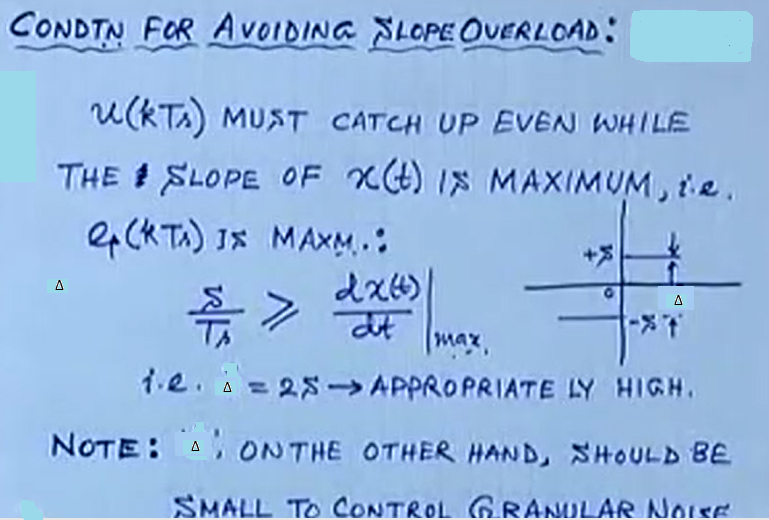 CONDTN FOR AVOIDING SLOPE OVERLOAD:
u(kTs) MUST CATCH UP EVEN WHILE
THE SLOPE OF x(t) IS MAXIMUM, i.e.
ep(kTs) IS MAXM.:
+S
0
Δ
-S
Δ
S/Ts ≥ dx(t)/dt |max.
i.e. Δ = 2S → APPROPRIATELY HIGH.
NOTE: Δ, ON THE OTHER HAND, SHOULD BE
SMALL TO CONTROL GRANULAR NOISE